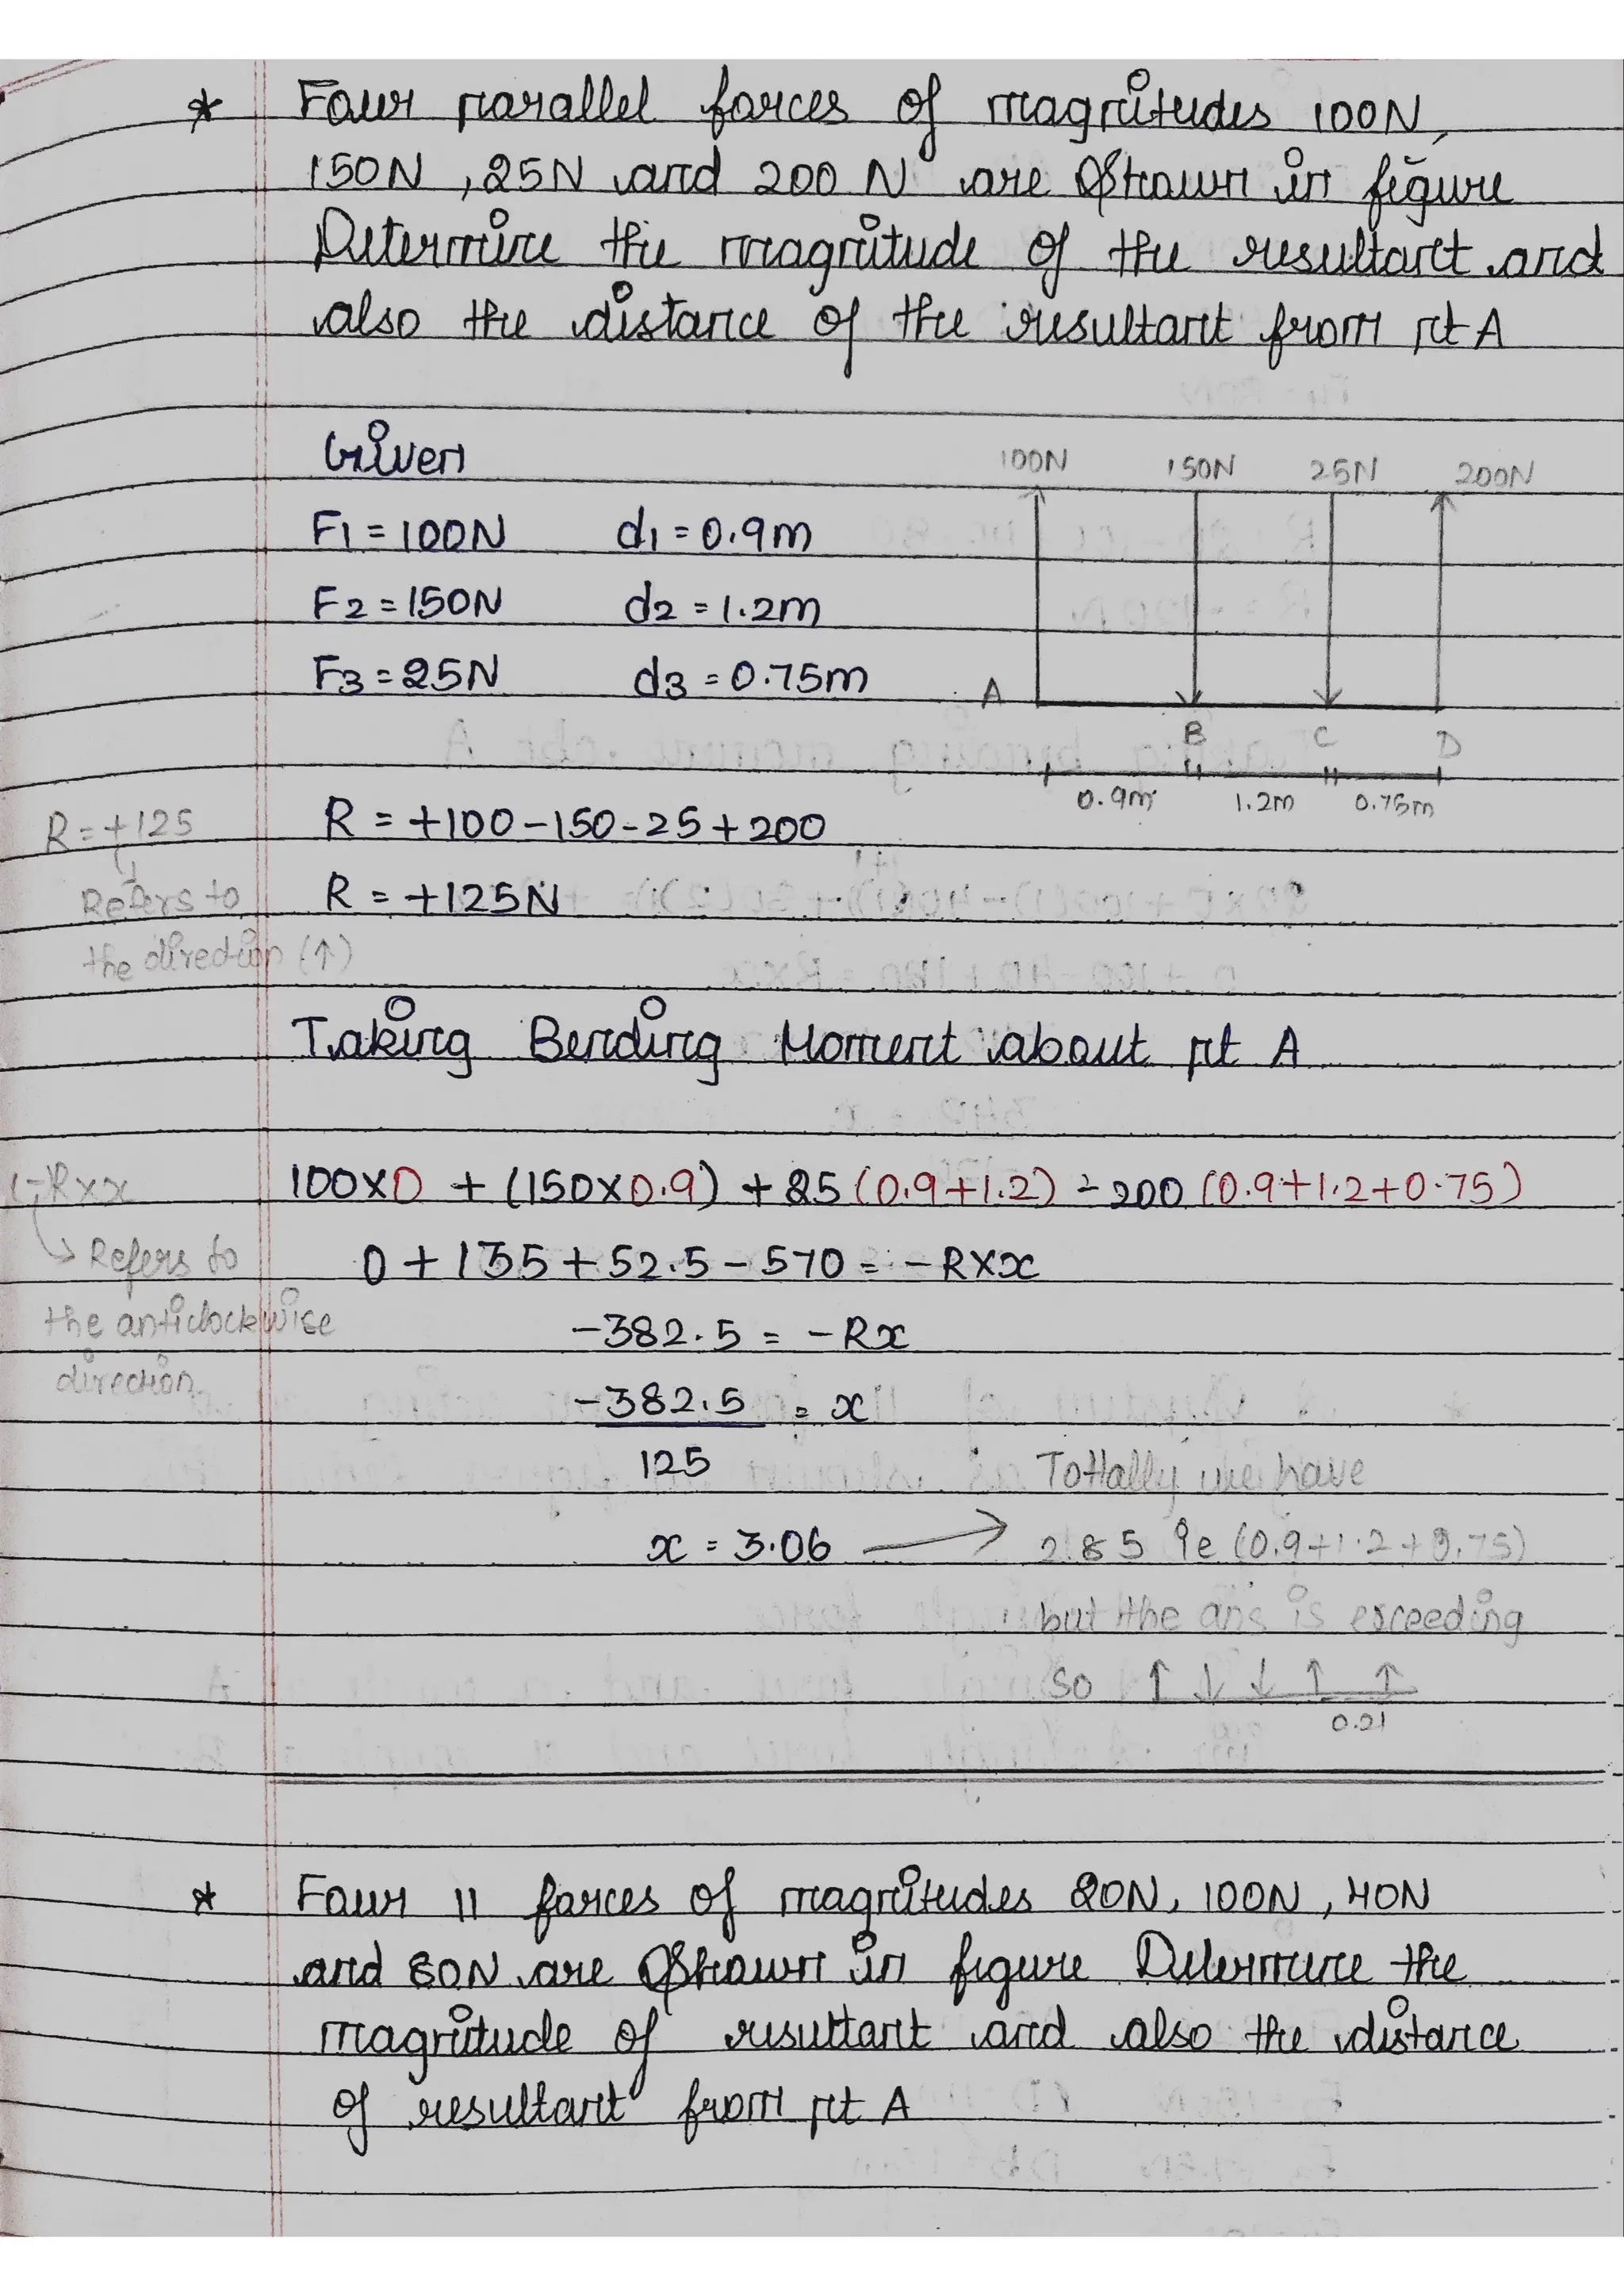 * Four parallel forces of magnitudes 100N,
150N, 25N and 200 N are shown in figure
Determine the magnitude of the resultant and
also the distance of the resultant from pt A
Given
100N 150N 25N 200N
F1 = 100N d1 = 0.9m
F2 = 150N d2 = 1.2m
F3 = 25N d3 = 0.75m
A
B C D
0.9m 1.2m 0.75m
R = +125
R = +100-150-25+200
Refers to
the direction (↑)
R = +125N
Taking Bending Moment about pt A
(-)R×x
100×0 + (150×0.9) + 25 (0.9+1.2) - 200 (0.9+1.2+0.75)
↳ Refers to
the anticlockwise
direction.
0 + 135 + 52.5 - 570 = -R×x
-382.5 = -Rx
-382.5 = x
125
x = 3.06 → Tottally we have
2.85 ie (0.9+1.2+0.75)
but the ans is exceeding
so ↑ ↓ ↓ ↑ ↑
0.21
* Four 11 forces of magnitudes 20N, 100N, 40N
and 80N are shown in figure Determine the
magnitude of resultant and also the distance
of resultant from pt A